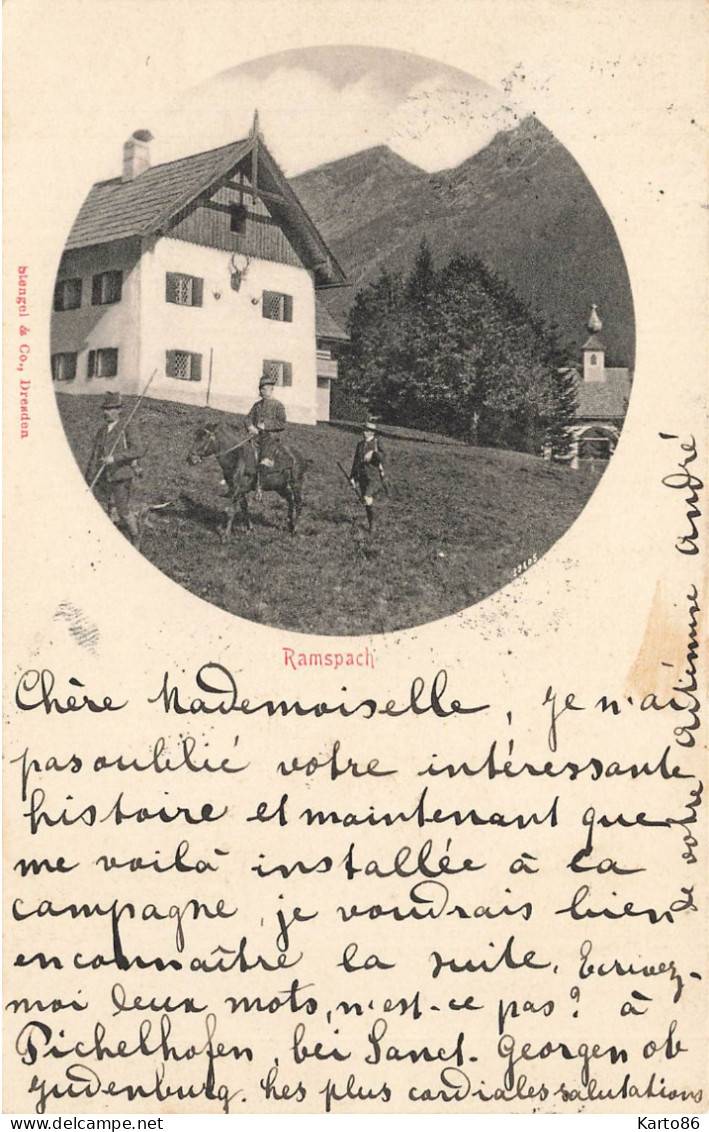 Stengel & Co., Dresden
Ramspach
Chère Mademoiselle, je n'ai
pas oublié votre intéressante
histoire et maintenant que
me voilà installée à la
campagne, je voudrais bien
en connaître la suite. Ecrivez-
moi deux mots, n'est-ce pas? à
Pichelhofen, bei Sanct. Georgen ob
Judenburg. Les plus cordiales salutations
de votre Artémise André
Karto86